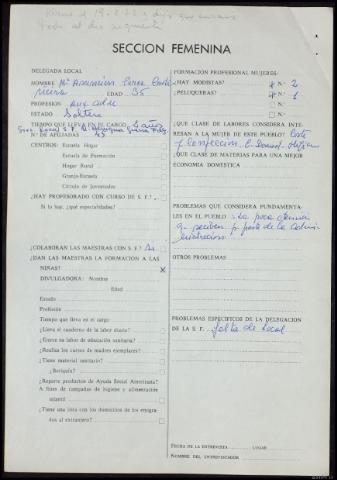 SECCION FEMENINA
DELEGADA LOCAL
NOMBRE Mª Asunción Perez
EDAD 35
PROFESION aux
ESTADO Soltera
TIEMPO QUE LLEVA EN EL CARGO 2 años
Nº DE AFILIADAS 45
CENTROS: Escuela Hogar
Escuela de Formación
Hogar Rural
Granja-Escuela
Círculo de Juventudes
¿HAY PROFESORADO CON CURSO DE S. F.?
Si lo hay, ¿qué especialidades?
¿COLABORAN LAS MAESTRAS CON S. F.?
¿DAN LAS MAESTRAS LA FORMACION A LAS
NIÑAS? X
DIVULGADORA: Nombre
Edad
Estado
Profesión
Tiempo que lleva en el cargo
¿Lleva el cuaderno de la labor diaria?
¿Ejerce su labor de educación sanitaria?
¿Realiza los cursos de madres ejemplares?
¿Tiene material sanitario?
¿Botiquín?
¿Reparte productos de Ayuda Social Americana?
A fines de campañas de higiene y alimentación
infantil
¿Tiene una lista con los domicilios de los emigra-
dos al extranjero?
FORMACION PROFESIONAL MUJERES:
¿HAY MODISTAS? Nº 2
¿PELUQUERAS? Nº 1
¿QUE CLASE DE LABORES CONSIDERA INTE-
RESAN A LA MUJER DE ESTE PUEBLO? Corte
y Confeccion.
¿QUE CLASE DE MATERIAS PARA UNA MEJOR
ECONOMIA DOMESTICA
PROBLEMAS QUE CONSIDERA FUNDAMENTA-
LES EN EL PUEBLO: La poca atencion
q. reciben p. parte de la admi-
nistracion
OTROS PROBLEMAS
PROBLEMAS ESPECIFICOS DE LA DELEGACION
DE LA S. F. falta de local
FECHA DE LA ENTREVISTA LUGAR
NOMBRE DEL ENTREVISTADOR